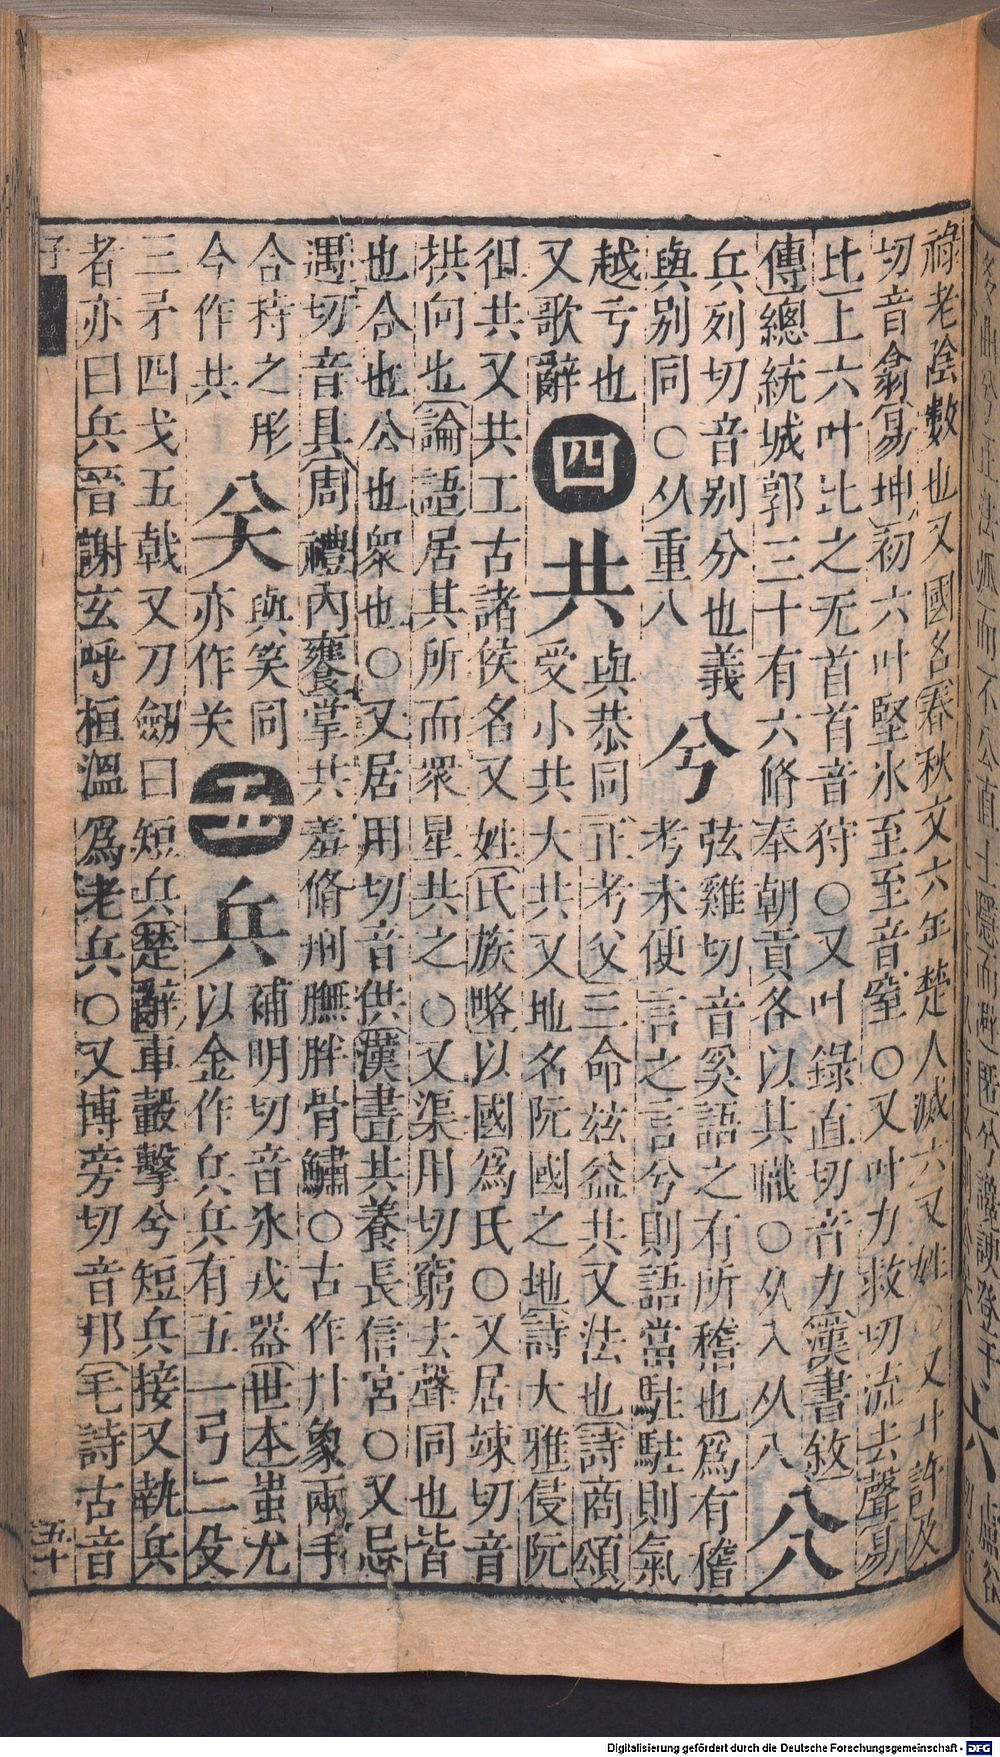 祿老陰數也又國名春秋文六年楚人滅六又姓○又叶許及
切音翕易坤初六叶堅氷至至音窒○又叶力救切流去聲易
比上六叶比之无首首音狩○又叶錄直切音力漢書敘
傳總統城郭三十有六脩奉朝貢各以其職○从入从八
𠔁
兵列切音别分也義
與别同○从重八
兮
弦雞切音奚語之有所稽也爲有稽
考未便言之言兮則語當駐駐則氣
越亏也
又歌辭
四
共
與恭同正考父三命兹益共又法也詩商頌
受小共大共又地名阮國之地詩大雅侵阮
徂共又共工古諸侯名又姓氏族略以國爲氏○又居竦切音
拱向也論語居其所而眾星共之○又渠用切窮去聲同也皆
也合也公也衆也○又居用切音供漢書共養長信宮○又忌
遇切音具周禮內饔掌共羞脩刑膴胖骨鱐○古作廾象兩手
合持之形
今作共
𠔃
與笑同
亦作关
五
兵
補明切音氷戎器世本蚩尤
以金作兵兵有五一弓二殳
三矛四戈五戟又刀劒曰短兵楚辭車轂擊兮短兵接又執兵
者亦曰兵晉謝玄呼桓溫爲老兵○又博旁切音邦毛詩古音
子
五十
Digitalisierung gefördert durch die Deutsche Forschungsgemeinschaft - DFG